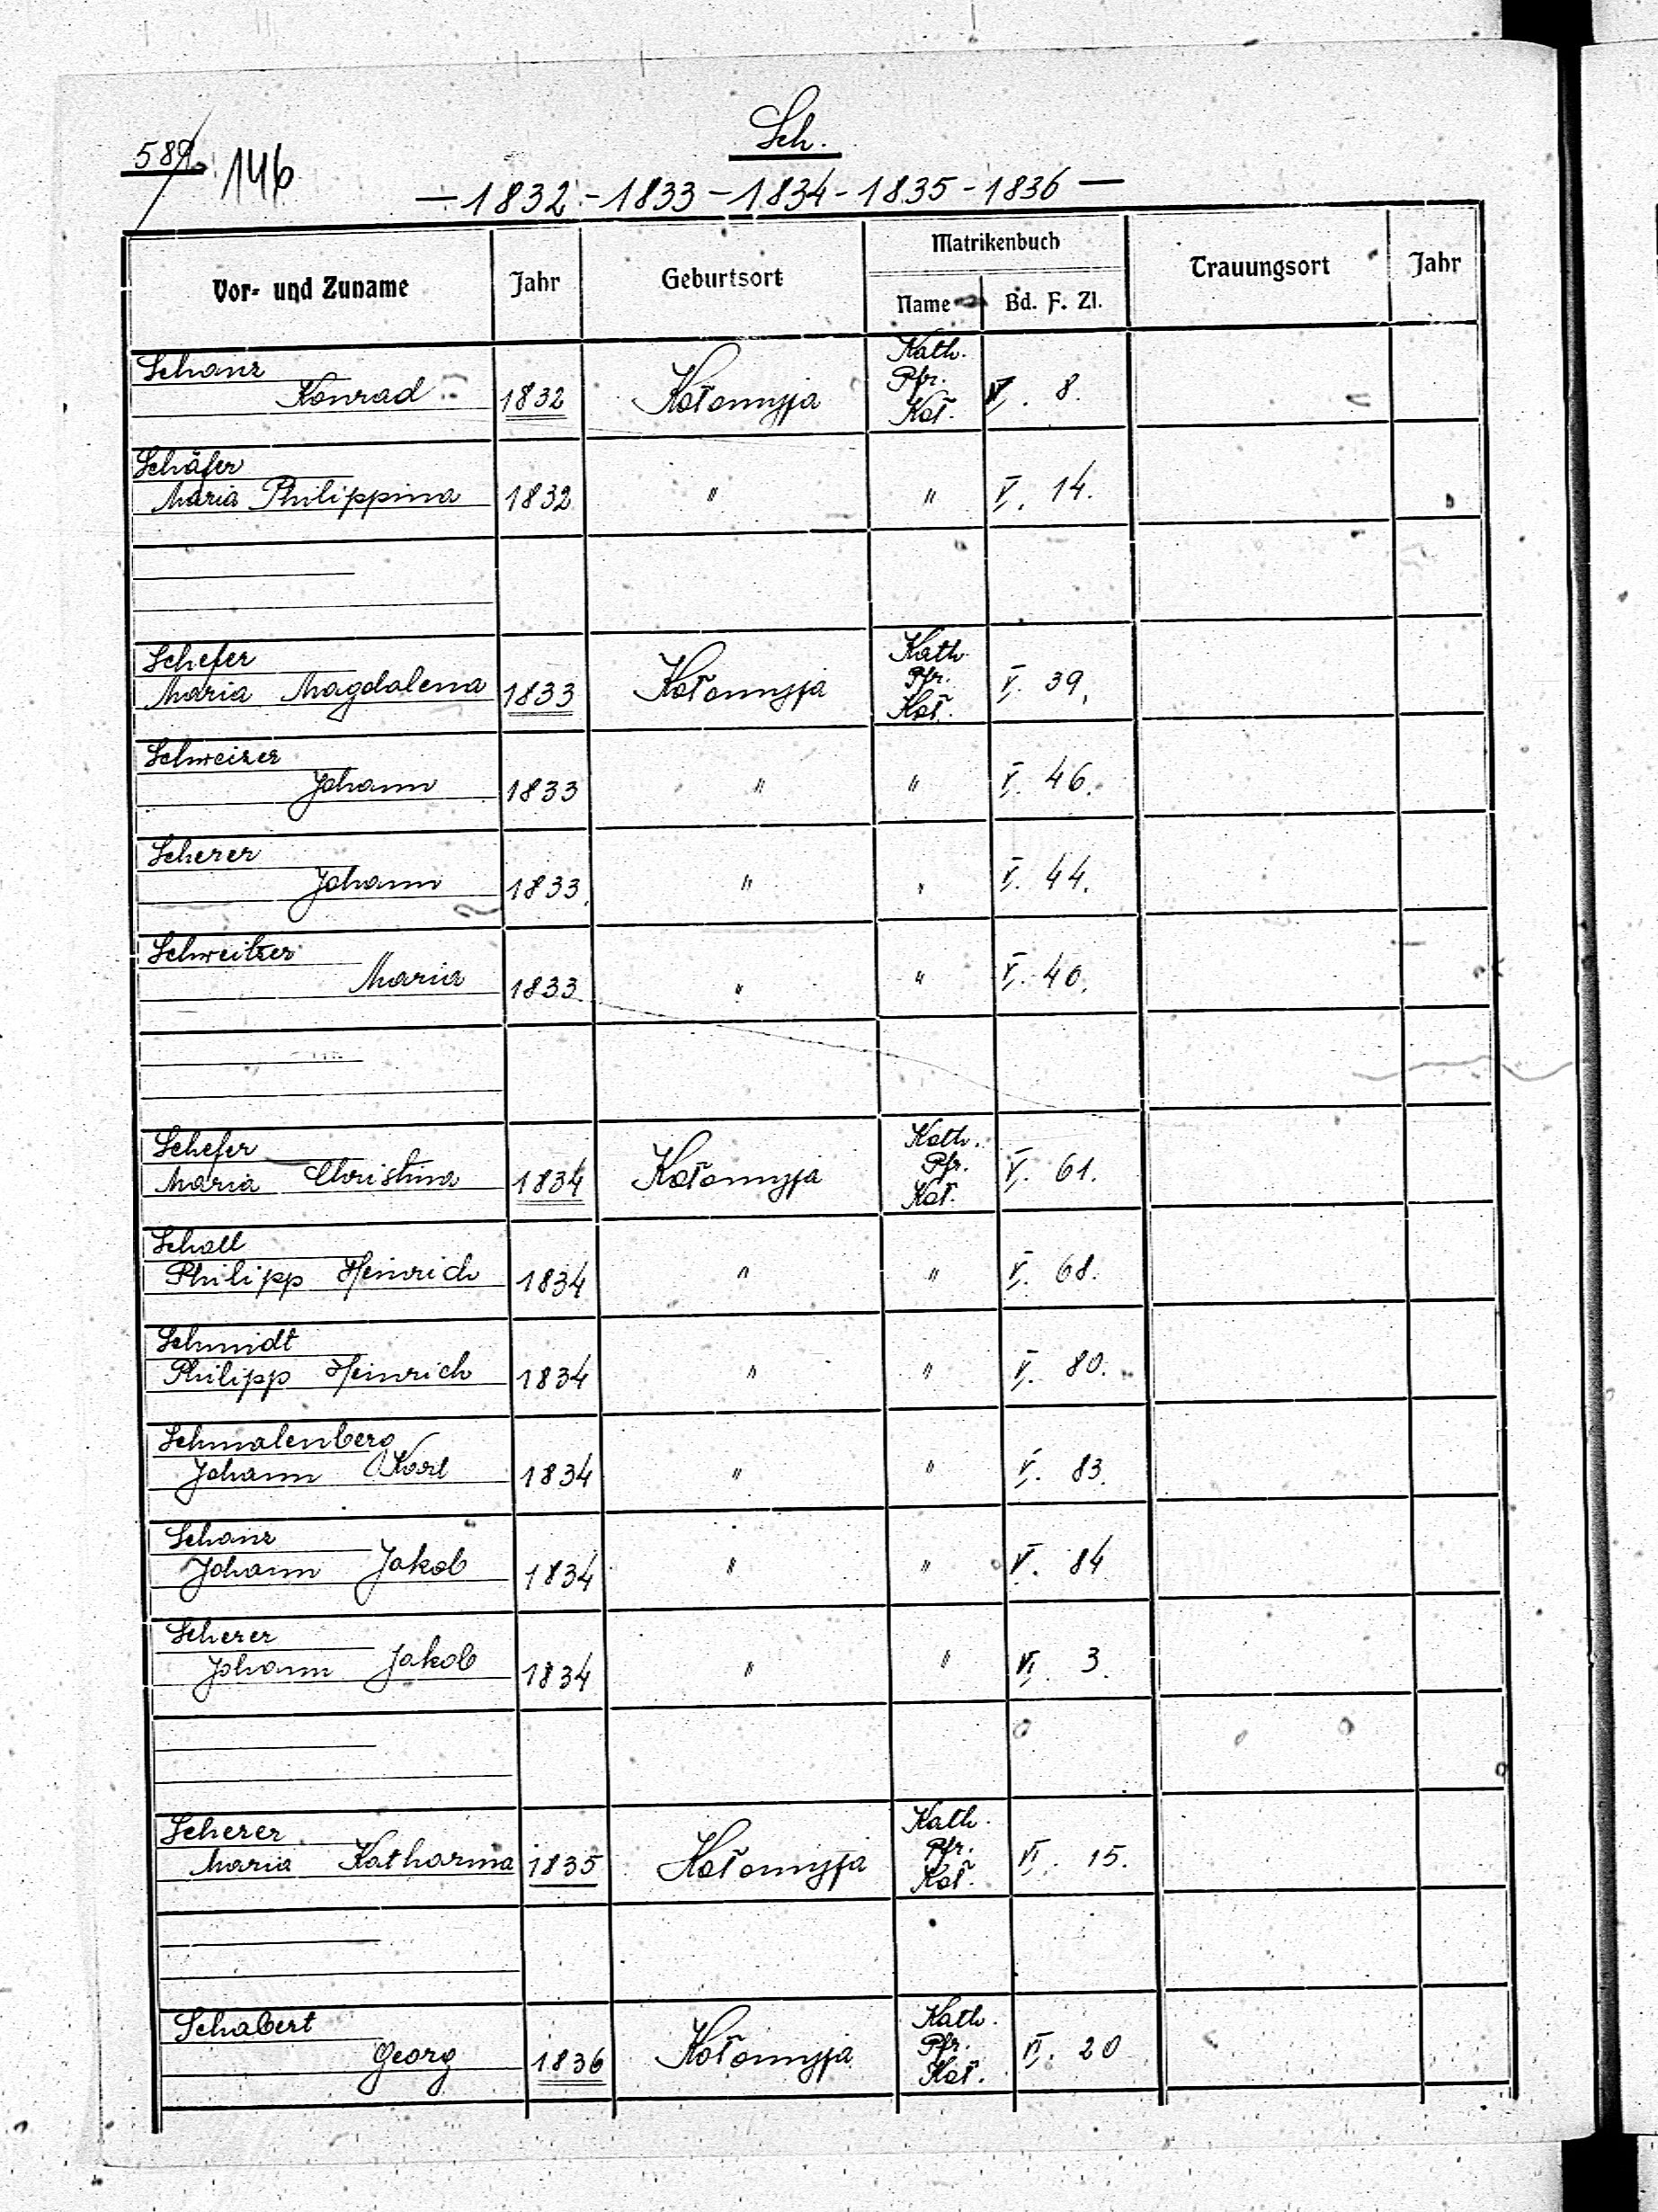 Sch.
146
— 1832 - 1833 - 1834 - 1835 - 1836 —
Vor- und Zuname Jahr Geburtsort Matrikenbuch Trauungsort Jahr
Name Bd. F. Zl.
Schanz Kath.
Konrad 1832 Kołomyja Pfr. V. 8.
Koł.
Schäfer
Maria Philippina 1832 " " V. 14.
Schefer Kath.
Maria Magdalena 1833 Kołomyja Pfr. V. 39.
Koł.
Schweizer
Johann 1833 " " V. 46.
Scherer
Johann 1833. " " V. 44.
Schweitzer
Maria 1833 " " V. 40.
Schefer Kath.
Maria Christina 1834 Kołomyja Pfr. V. 61.
Koł.
Schall
Philipp Heinrich 1834 " " V. 68.
Schmidt
Philipp Heinrich 1834 " " V. 80.
Schmalenberg
Johann Karl 1834 " " V. 83.
Schanz
Johann Jakob 1834 " " V. 84
Scherer
Johann Jakob 1834 " " VI. 3.
Scherer Kath.
Maria Katharina 1835 Kołomyja Pfr. VI. 15.
Koł.
Schabert Kath.
Georg 1836 Kołomyja Pfr. VI. 20
Koł.